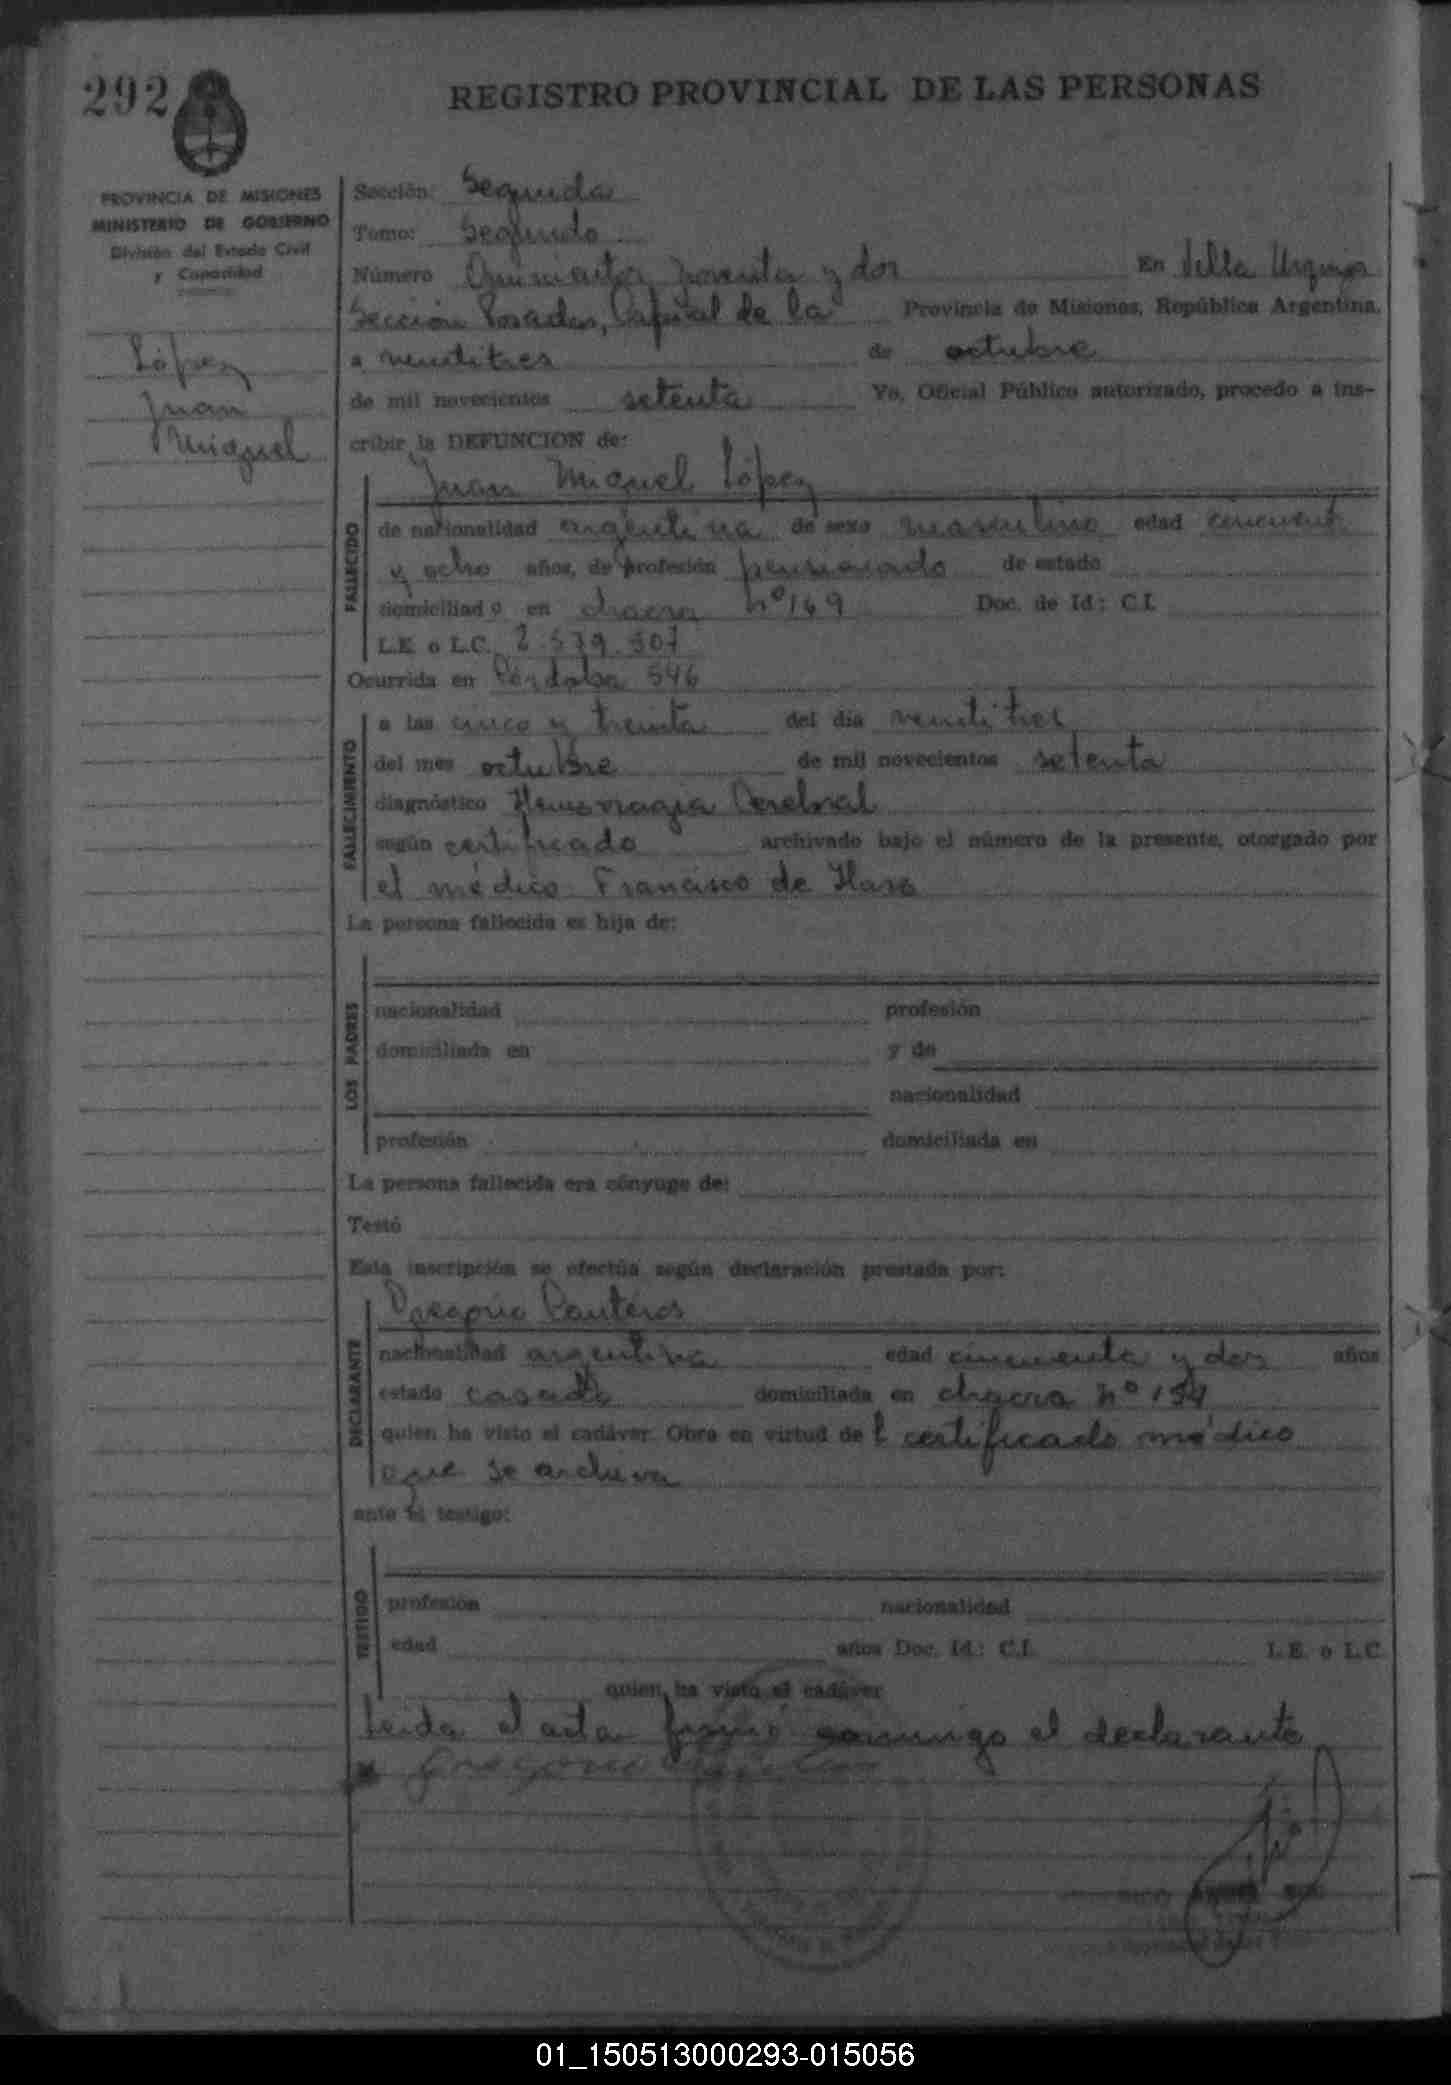 292
REGISTRO PROVINCIAL DE LAS PERSONAS
PROVINCIA DE MISIONES
MINISTERIO DE GOBIERNO
División del Estado Civil
y Capacidad
López
Juan
Miguel
Sección: Segunda
Tomo: Segundo
Número Quinientos noventa y dos En Villa Urquiza
Sección Posadas, Capital de la Provincia de Misiones, República Argentina,
a veintitres de octubre
de mil novecientos setenta Yo, Oficial Público autorizado, procedo a ins-
cribir la DEFUNCION de:
Juan Miguel López
FALLECIDO
de nacionalidad argentina de sexo masculino edad cincuenta
y ocho años, de profesión pensionado de estado
domiciliado en chacra nº 169 Doc. de Id: C.I.
L.E. o L.C. 2.579.507
Ocurrida en Córdoba 546
FALLECIMIENTO
a las cinco y treinta del día veintitres
del mes octubre de mil novecientos setenta
diagnóstico Hemorragia Cerebral
según certificado archivado bajo el número de la presente, otorgado por
el médico Francisco de Haro
La persona fallecida es hija de:
LOS PADRES
nacionalidad profesión
domiciliada en y de
nacionalidad
profesión domiciliada en
La persona fallecida era cónyuge de:
Testó
Esta inscripción se efectúa según declaración prestada por:
DECLARANTE
Gregorio
nacionalidad argentina edad cincuenta y dos años
estado casado domiciliada en chacra nº 154
quien ha visto el cadáver. Obra en virtud del certificado médico
que se archiva
ante el testigo:
TESTIGO
profesión nacionalidad
edad años Doc. Id.: C.I. L.E. o L.C.
quien ha visto el cadáver
Leida el acta firmó conmigo el declarante
Gregorio
01_150513000293-015056